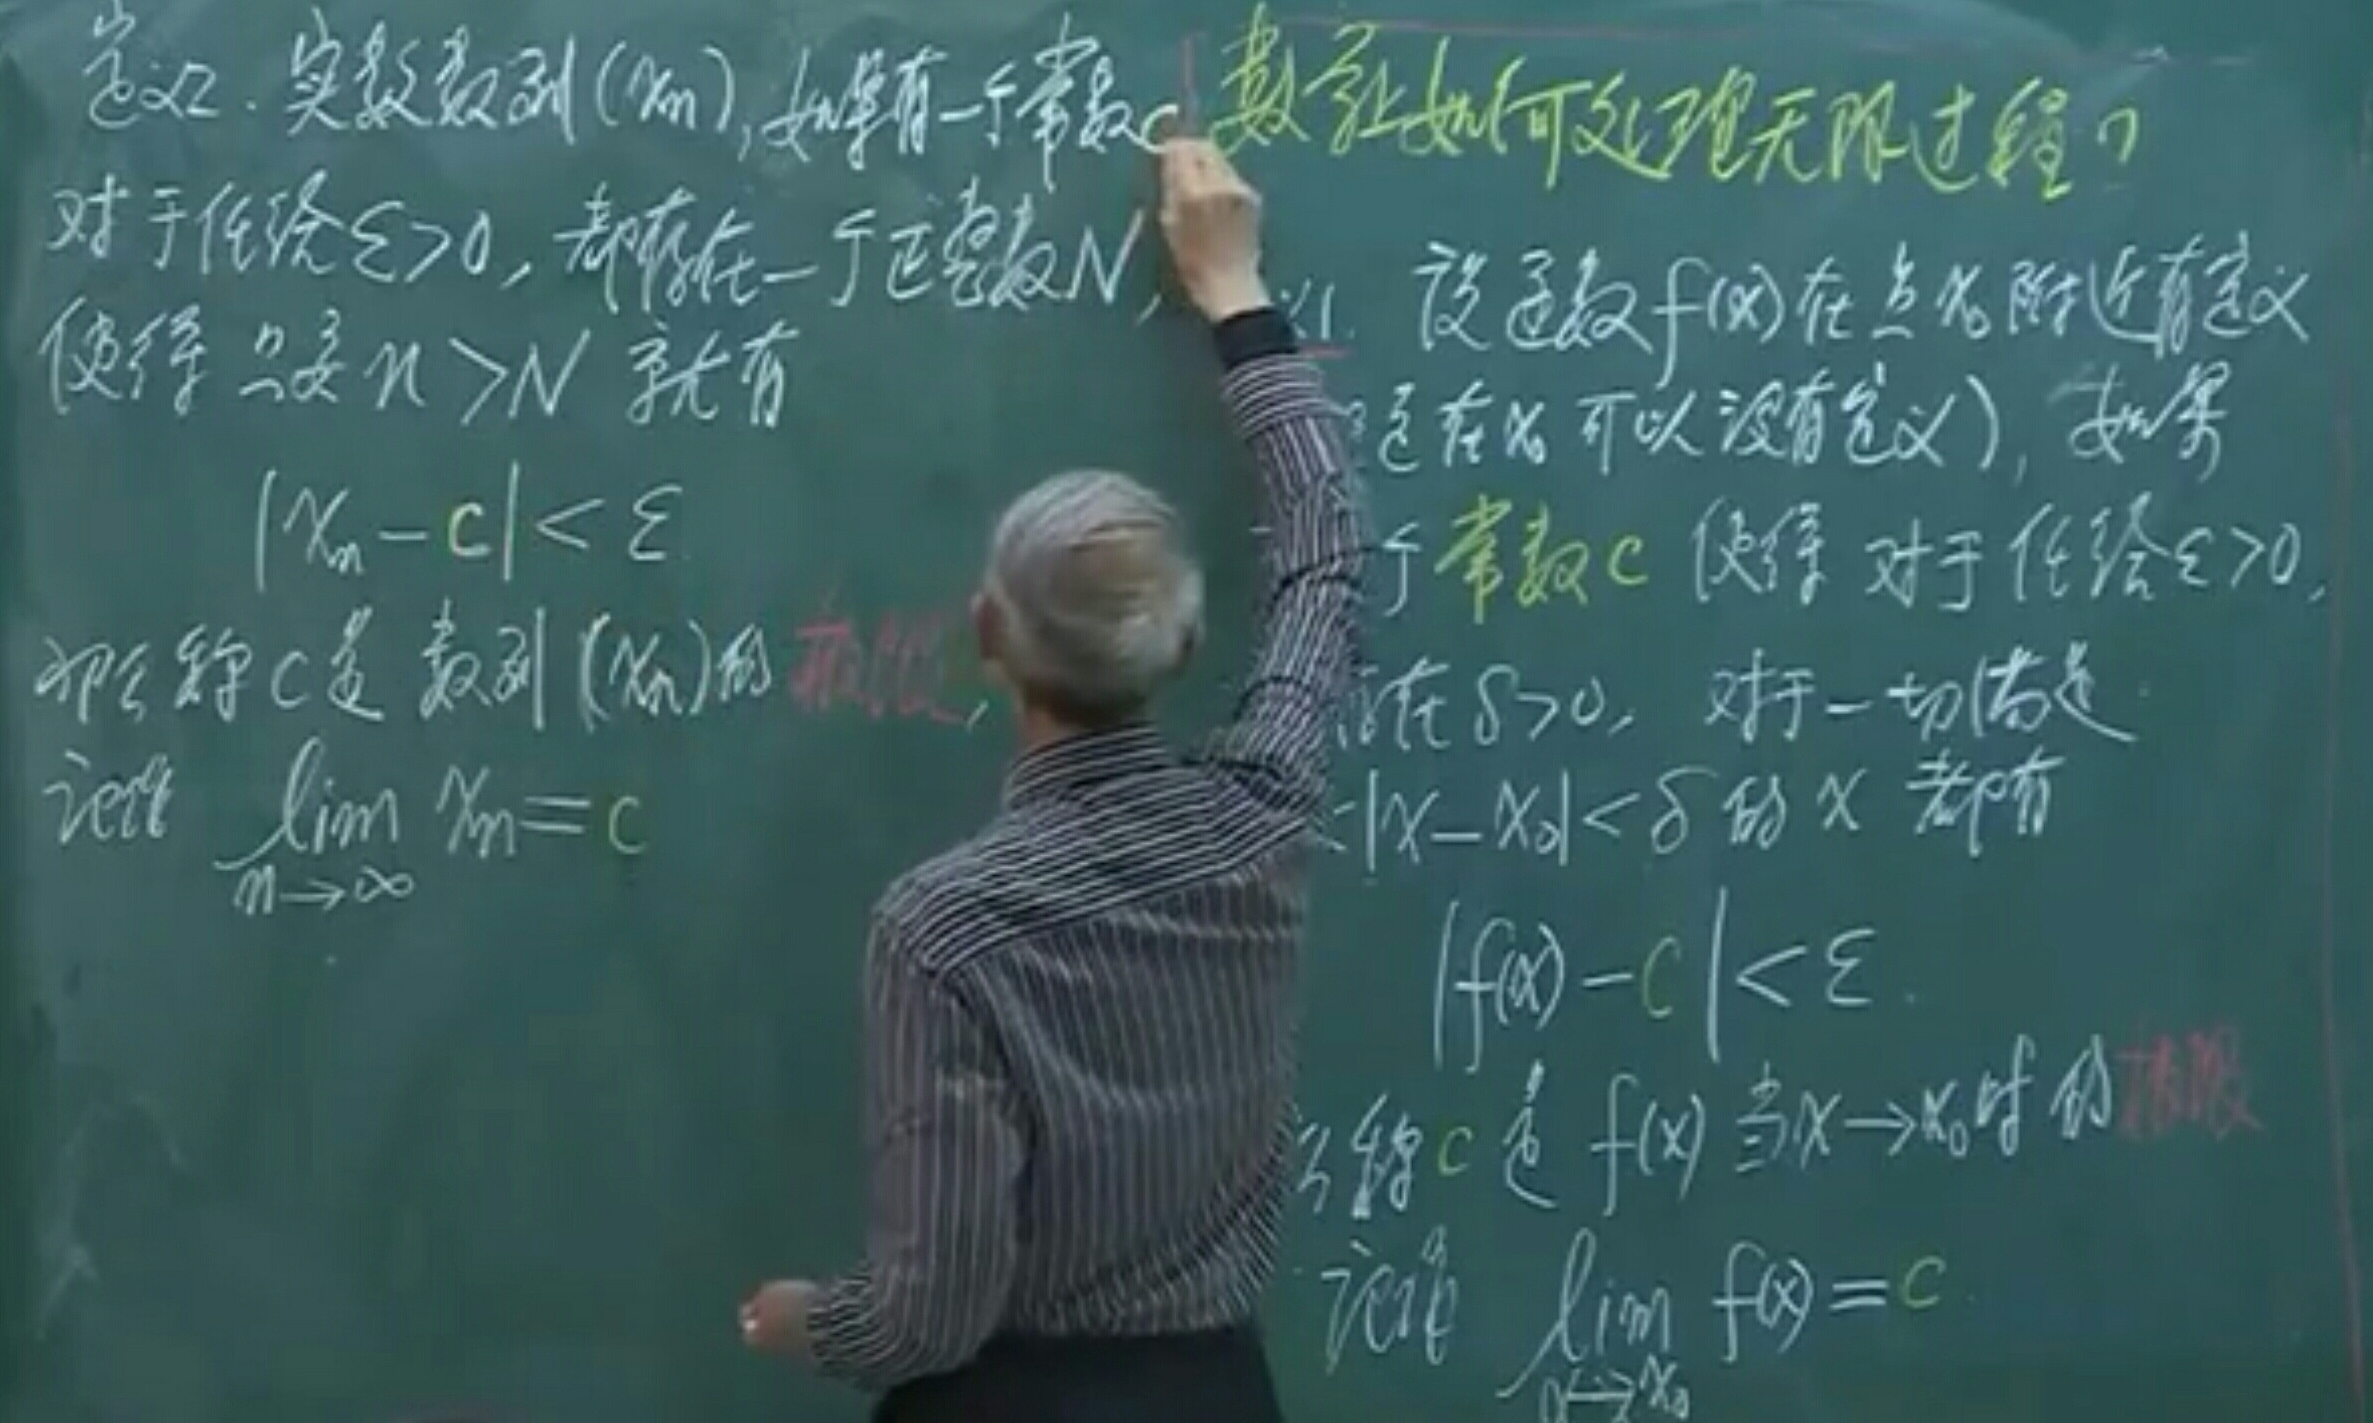 定义2. 实数数列(xn), 如果有一个常数c
对于任给ε>0, 都存在一个正整数N,
使得只要n>N 就有
|xn-c|<ε.
那么称c是数列(xn)的极限,
记作 lim xn=c
n→∞
数学如何处理无限过程?
义1. 设函数f(x)在点x0附近有定义
是在x0可以没有定义), 如果
个常数c 使得 对于任给ε>0,
存在δ>0, 对于一切满足
<|x-x0|<δ的x都有
|f(x)-c|<ε.
么称c是f(x)当x→x0时的极限
记作 lim f(x)=c
x→x0